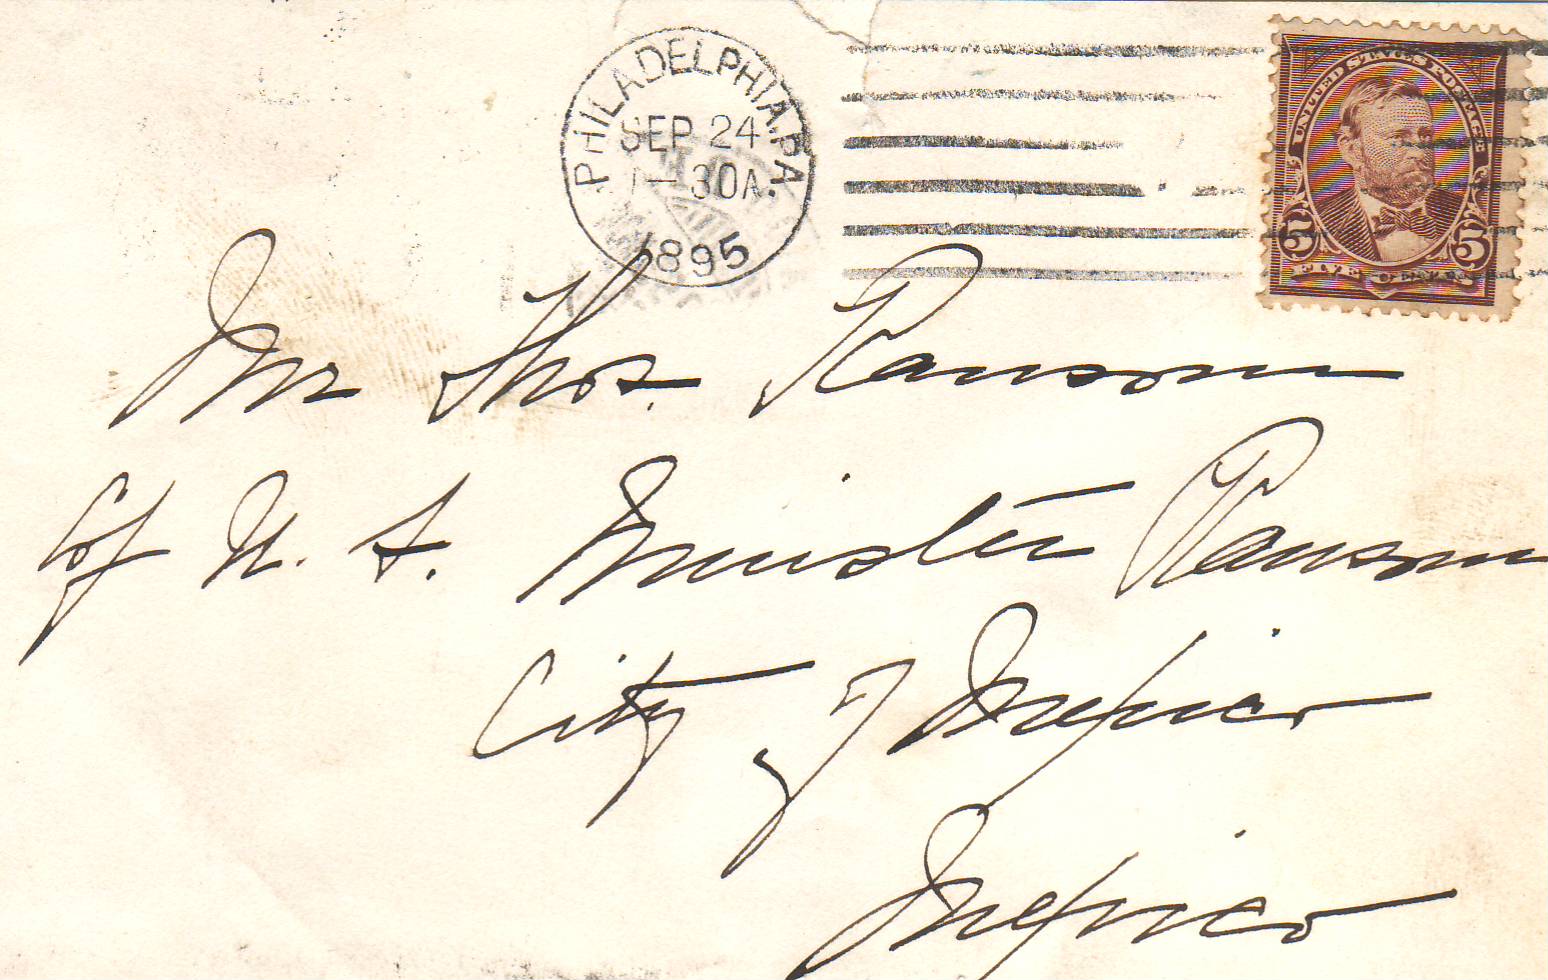 PHILADELPHIA, PA.
SEP 24
1-30A.
1895
UNITED STATES POSTAGE
5 5
FIVE CENTS
Mr Thos. Ransom
c/o U. S. Minister Ransom
City of Mexico
Mexico